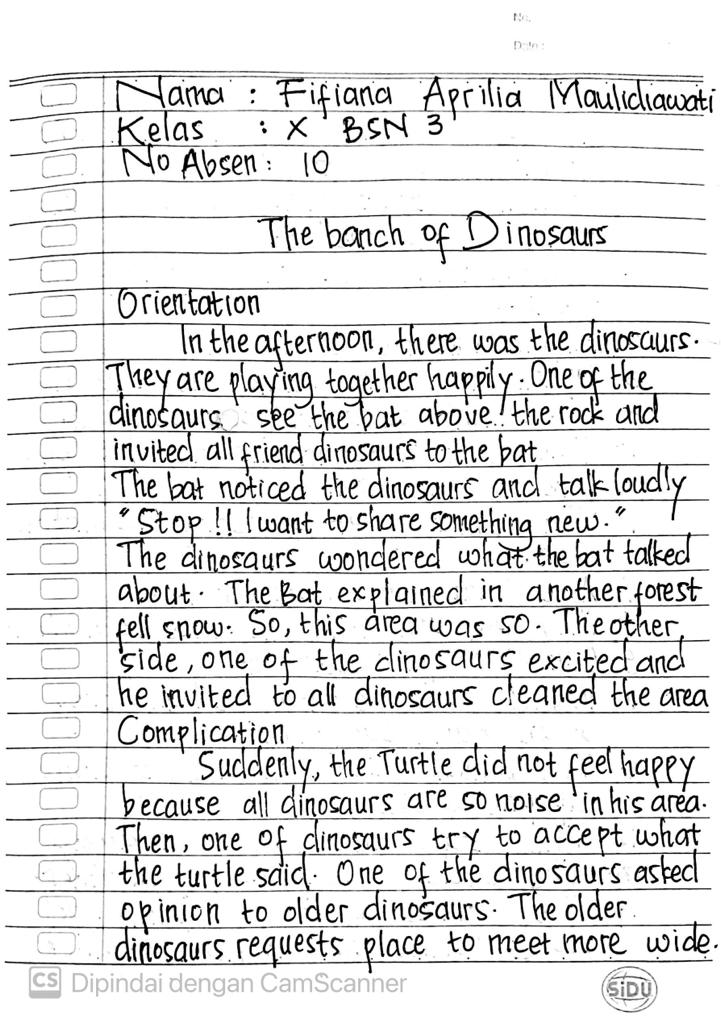 No.
Date:
Nama : Fifiana Aprilia Maulidiawati
Kelas : X BSN 3
No Absen : 10
The banch of Dinosaurs
Orientation
In the afternoon, there was the dinosaurs.
They are playing together happily. One of the
dinosaurs see the bat above the rock and
invited all friend dinosaurs to the bat
The bat noticed the dinosaurs and talk loudly
"Stop!! I want to share something new."
The dinosaurs wondered what the bat talked
about. The Bat explained in another forest
fell snow. So, this area was so. The other
side, one of the dinosaurs excited and
he invited to all dinosaurs cleaned the area
Complication
Suddenly, the Turtle did not feel happy
because all dinosaurs are so noise in his area.
Then, one of dinosaurs try to accept what
the turtle said. One of the dinosaurs asked
opinion to older dinosaurs. The older
dinosaurs requests place to meet more wide.
CS Dipindai dengan CamScanner
SiDU